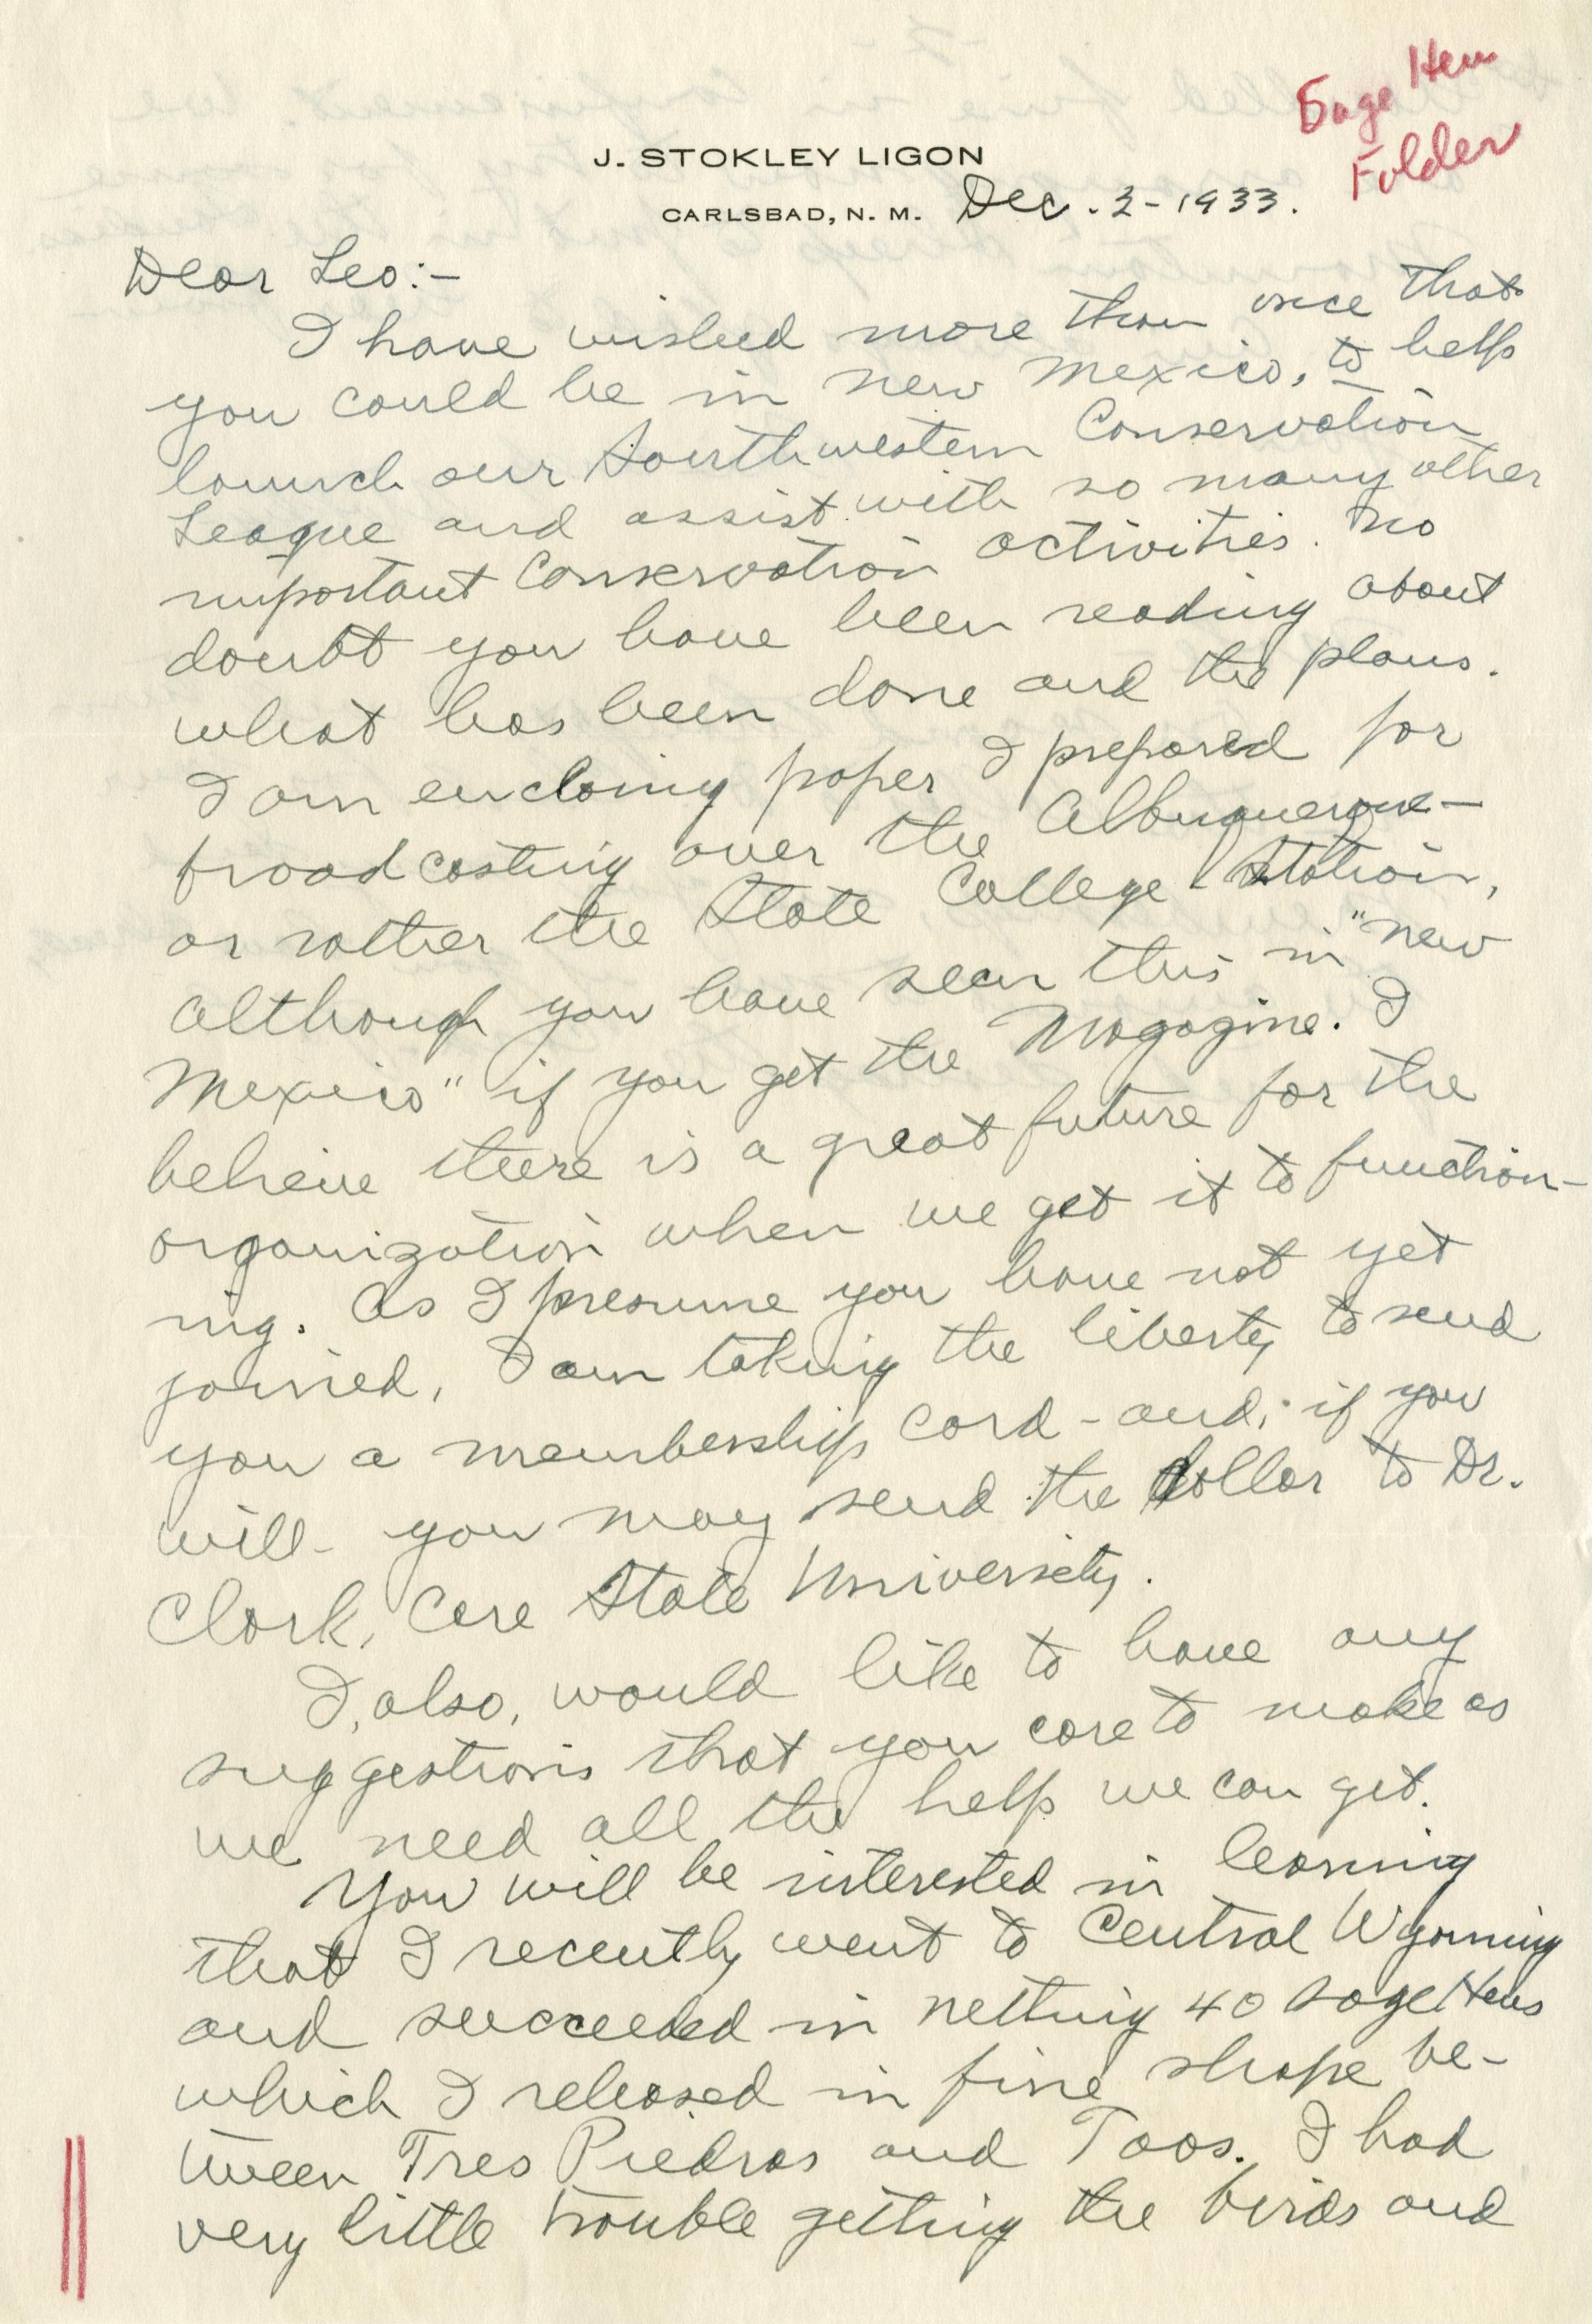 Sage Hen
Folder
J. STOKLEY LIGON
CARLSBAD, N. M. Dec. 2-1933.
Dear Leo:-
I have wished more than once that
you could be in New Mexico, to help
launch our Southwestern Conservation
League and assist with so many other
important Conservation activities. No
doubt you have been reading about
what has been done and the plans.
I am enclosing paper I prepared for
broadcasting over the Albuquerque-
or rather the State College Station,
although you have seen this in "New
Mexico" if you get the Magazine. I
believe there is a great future for the
organization when we get it to function-
ing. As I presume you have not yet
joined, I am taking the liberty to send
you a membership card - and, if you
will - you may send the dollar to Dr.
Clark, Care State University.
I, also, would like to have any
suggestions that you care to make as
we need all the help we can get.
You will be interested in learning
that I recently went to Central Wyoming
and succeeded in netting 40 Sage Hens
which I released in fine shape be-
tween Tres Piedras and Taos. I had
very little trouble getting the birds and